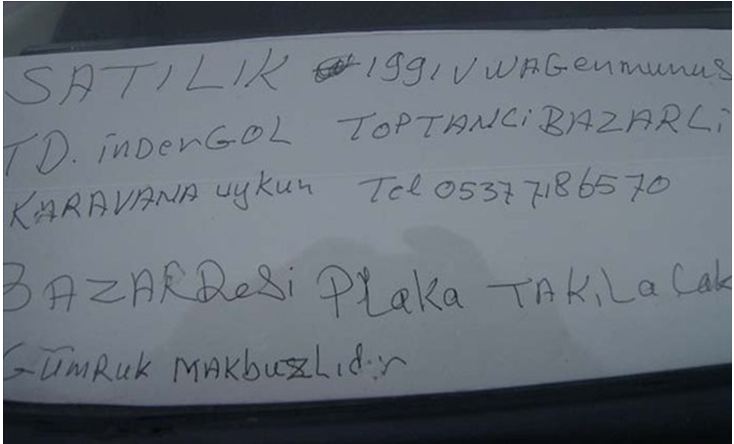 SATILIK 1991 V WAGenmunus
TD. inDerGOL TOPTANCi BAZARLi
KARAVANA uykun Tel 0537 7186570
BAZARDesi PLaka TAKiLaCak
GÜMRuK MAKbuzLidir